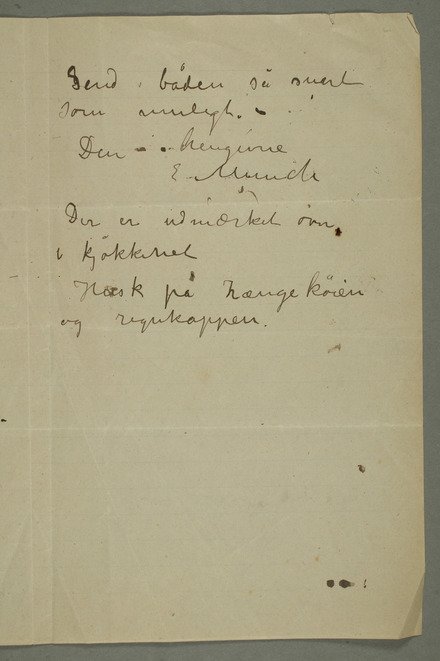 Send båden så snart
som muligt. –
Den hengivne
E Munch
Der er udmærket ovn
i kjøkkenet
Husk på hængekøien
og regnkappen.